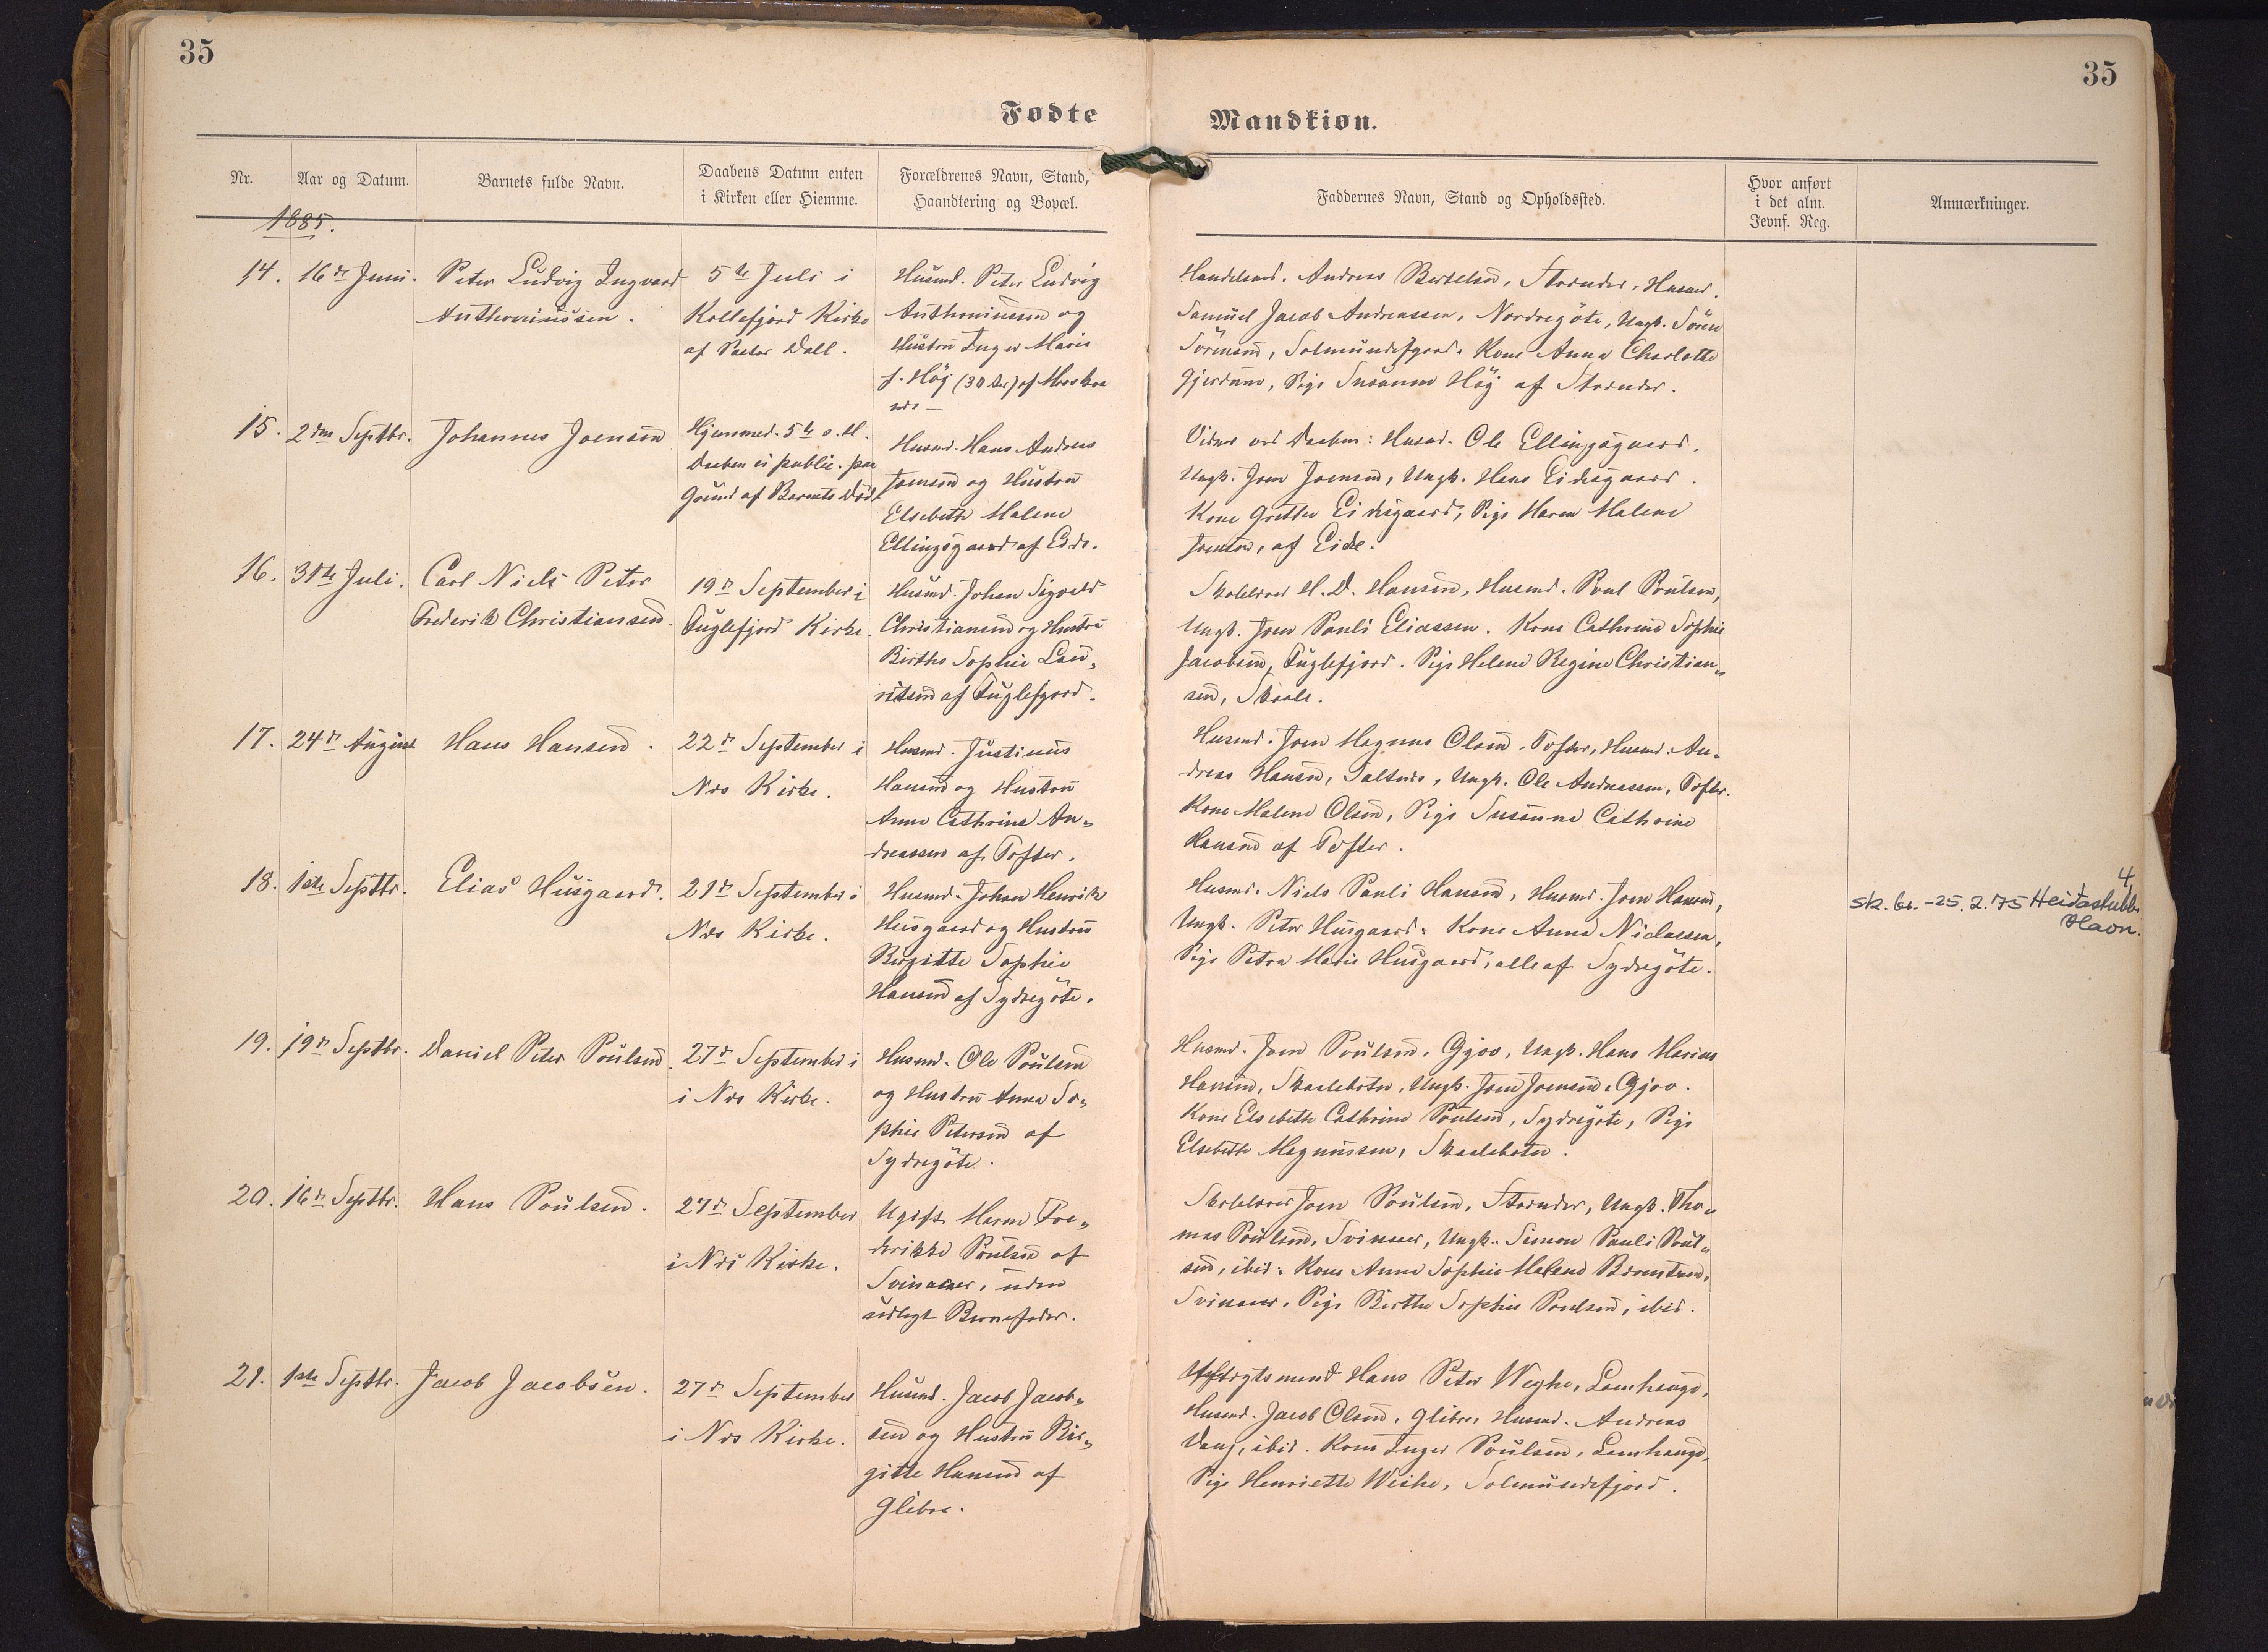 35
35
Fødte
Mandkiøn.
Nr.
Aar og Datum.
Barnets fulde Navn.
Daabens Datum enten
i Kirken eller Hiemme.
Forældrenes Navn, Stand,
Haandtering og Bopæl.
Faddernes Navn, Stand og Opholdssted.
Hvor anført
i det alm.
Jevnf. Reg.
Anmærkninger.
1885.
14.
16de Juni.
Peter Ludvig Ingvard
Anthoniussen.
5te Juli i
Kollefjord Kirke
af Pastor Dall.
Husmd. Peter Ludvig
Anthoniussen og
Hustru Inger Marie
f. Höj (30 Ar) af
Andreas Bertelsen, Strender, Husmd.
Samuel Jacob Andreassen, Nordregöte, Ungk. Sören
Sörensen, Kone Anna Charlotte
Pige Susanne Höj af Strender.
15.
2den Septbr.
Johannes Joensen
Hjemmed. 5te s. M.
Daaben ei public. paa
Grund af Barnets Död.
Husmd. Hans Andreas
Joensen og Hustru
Elsebeth Malene
Ellingsgaard af Eide.
Vidner ved Daaben: Husmd. Ole Ellingsgaard.
Ungk. Joen Joensen, Ungk. Hans Eidesgaard.
Kone Grethe Eidesgaard, Pige Maren Malene
Joensen, af Eide.
16.
31te Juli.
Carl Niels Peter
Frederik Christiansen.
19de September i
Fuglefjord Kirke.
Husmd. Johan Sigvald
Christiansen og Hustru
Birthe Sophie Lau-
ritsen af Fuglefjord.
Skolelærer H. D. Hansen, Husmd. Poul Poulsen,
Ungk. Joen Pauli Eliassen. Kone Cathrine Sophie
Jacobsen, Fuglefjord. Pige Helene Regine Christian-
sen, Skaale.
17.
24de August
Hans Hansen.
22de September i
Næs Kirke.
Husmd. Justinus
Hansen og Hustru
Anne Cathrine An-
dreassen af Tofter.
Husmd. Joen Magnus Olsen, Tofter, Husmd. An-
dreas Hansen, Saltnæs, Ungk. Ole Andreassen, Tofter.
Kone Malene Olsen, Pige Susanne Cathrine
Hansen af Tofter.
18.
1ste Septbr.
Elias Husgaard.
21de September i
Næs Kirke.
Husmd. Johan Henrik
Husgaard og Hustru
Birgitte Sophie
Hansen af Sydregöte.
Husmd. Niels Pauli Hansen, Husmd. Joen Hansen,
Ungk. Peter Husgaard. Kone Anna Niclassen,
Pige Petra Marie Husgaard, alle af Sydregöte.
4
sk. br. -25.2.75 Heiðastubba
Havn.
19.
19de Septbr.
Daniel Peter Poulsen.
27de September i
i Næs Kirke.
Husmd. Ole Poulsen
og Hustru Anna So-
phie Petersen af
Sydregöte.
Husmd. Joen Poulsen, Gjov, Ungk. Hans Marius
Hansen, Skaalebotn, Ungk. Joen Joensen, Gjov.
Kone Elsebeth Cathrine Poulsen, Sydregöte, Pige
Elsebeth Magnussen, Skaalebotn.
20.
16de Septbr.
Hans Poulsen.
27de September
i Næs Kirke.
Ugift Maren Fre-
derikke Poulsen af
Svinaaer, uden
udlagt Barnefader.
Skolelærer Joen Poulsen, Strender, Ungk. Tho-
mas Poulsen, Svinaaer, Ungk. Simon Pauli Poul-
sen, ibid. Kone Anne Sophie Malene
Svinaaer, Pige Birthe Sophie Poulsen, ibid.
21.
1ste Septbr.
Jacob Jacobsen.
27de September
i Næs Kirke.
Husmd. Jacob Jacob-
sen og Hustru Bir-
gitte Hansen af
Glibre.
Aftægtsmand Hans Peter Weyhe, Lamhauge,
Husmd. Jacob Olsen, Glibre, Husmd. Andreas
Vang, ibid. Kone Inger Poulsen, Lamhauge,
Pige Henriette Weihe, Solmundefjord.